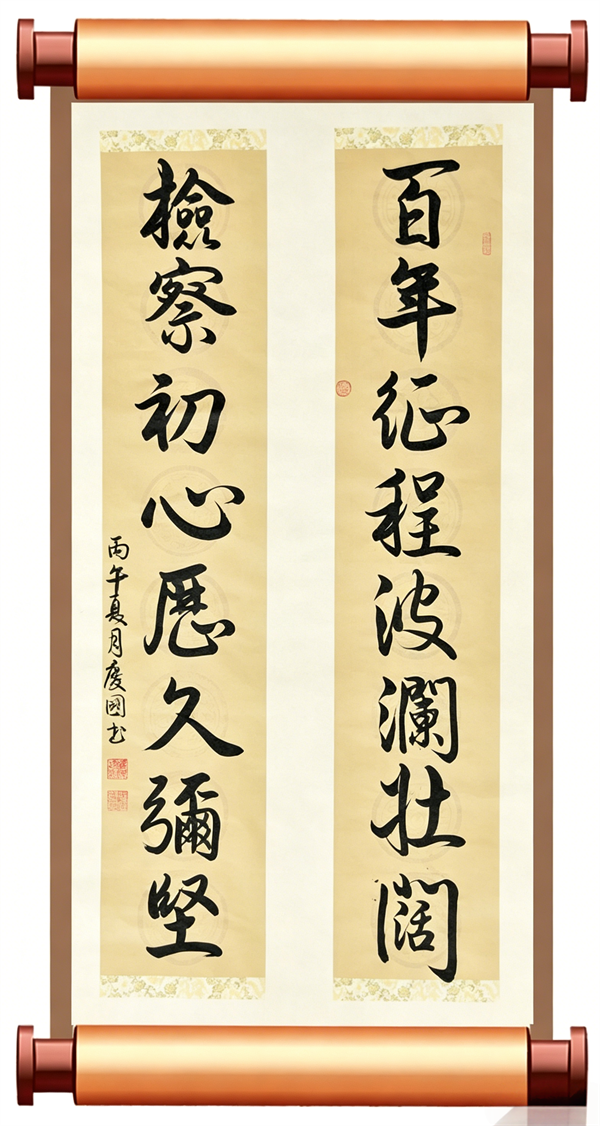 百年征程波瀾壮闊
檢察初心歷久彌堅
丙午夏月慶國书